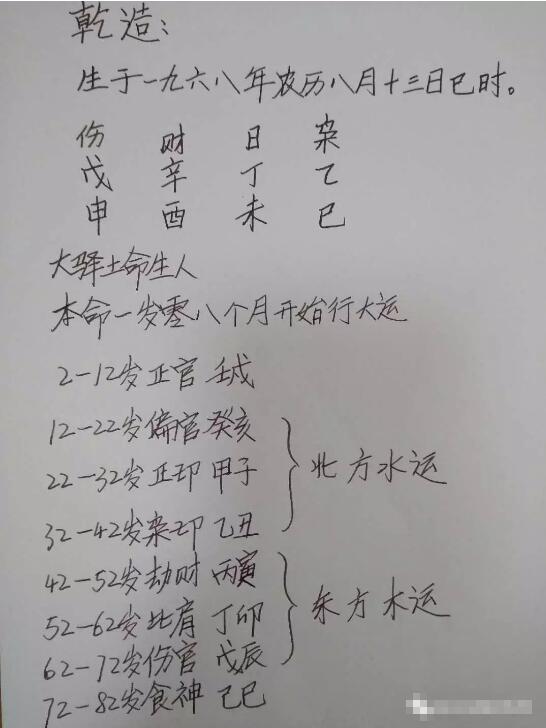 乾造:
生于一九六八年农历八月十三日巳时。
伤 财 日 枭
戊 辛 丁 乙
申 酉 未 巳
大驿土命生人
本命一岁零八个月开始行大运
2-12岁正官 壬戌
12-22岁偏官 癸亥
22-32岁正印 甲子
北方水运
32-42岁枭印 乙丑
42-52岁劫财 丙寅
52-62岁比肩 丁卯
东方木运
62-72岁伤官 戊辰
72-82岁食神 己巳